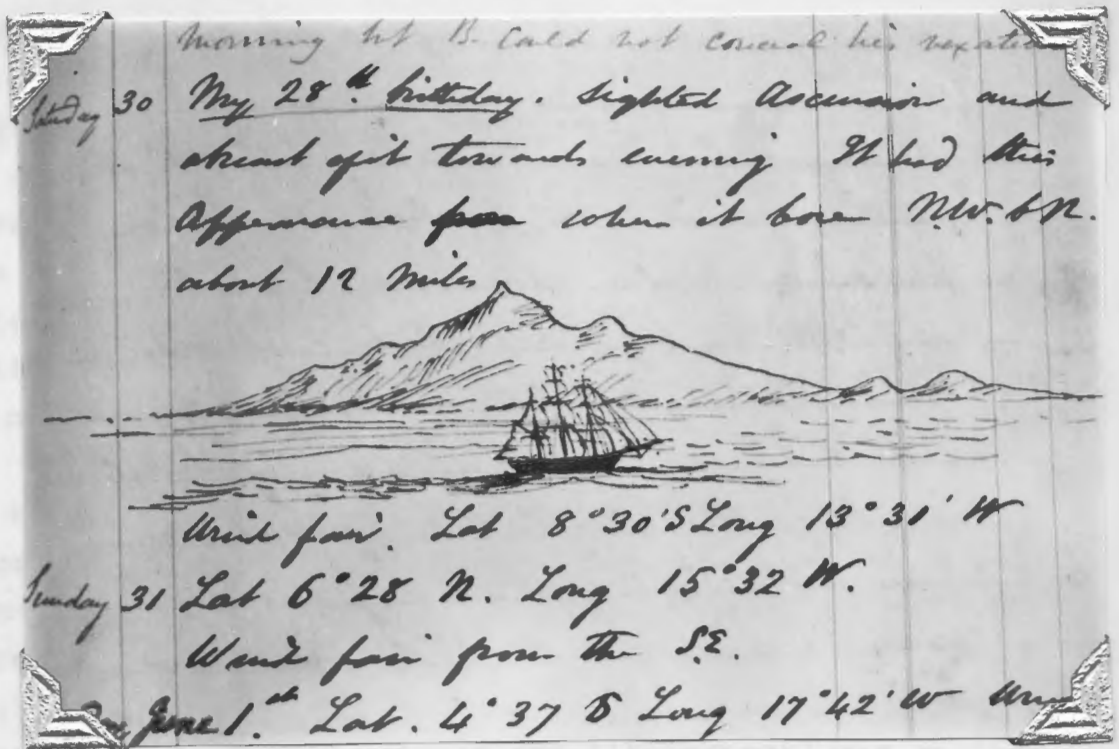 morning but B. could not conceal his vexation
Saturday 30 My 28th birthday. Sighted Ascension and
abreast of it towards evening It had this
Appearance from when it bore N.W. b N.
about 12 Miles
Wind fair. Lat 8°30'S Long 13°31' W
Sunday 31 Lat 6°28 N. Long 15°32 W.
Wind fair from the S.E.
June 1th Lat. 4°37 S Long 17°42' W Wind